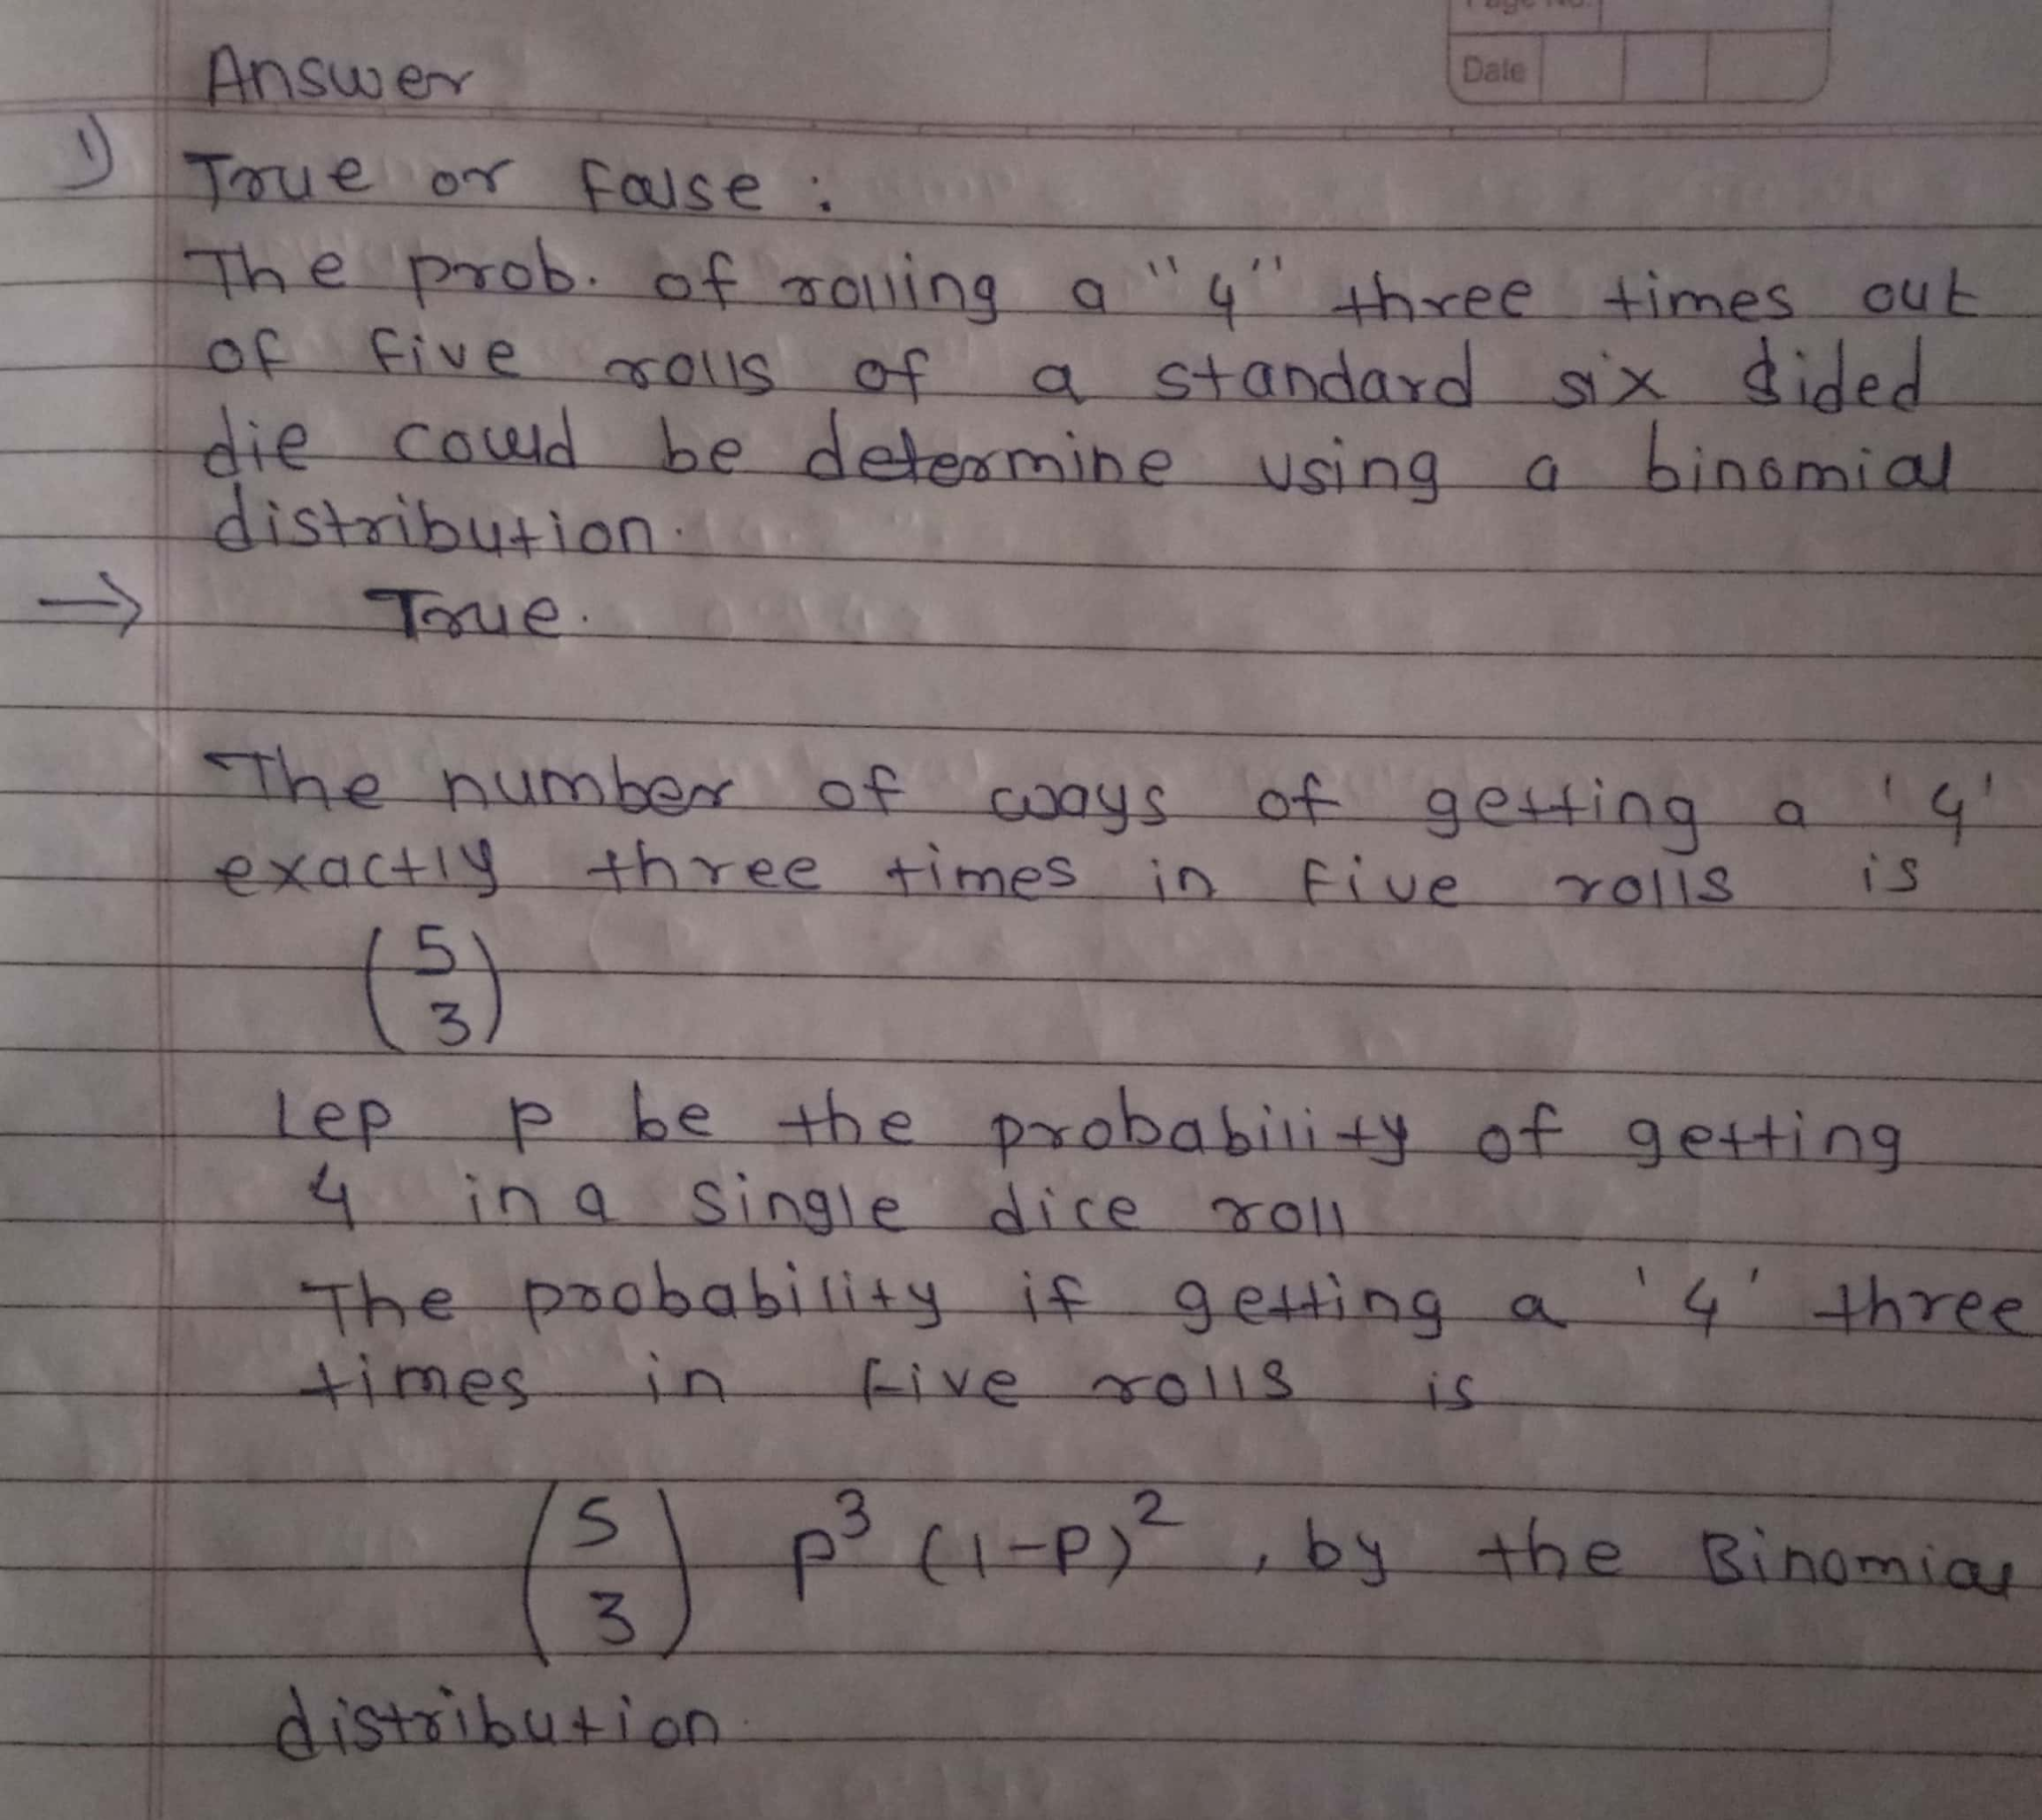 Page No.
Date
Answer
1) True or false :
The prob. of rolling a "4" three times out
of five rolls of a standard six sided
die could be determine using a binomial
distribution.
⇒ True.
The number of ways of getting a '4'
exactly three times in five rolls is
(5
3)
Lep p be the probability of getting
4 in a single dice roll
The probability if getting a '4' three
times in five rolls is
(5
3) p³ (1-p)², by the Binomial
distribution.